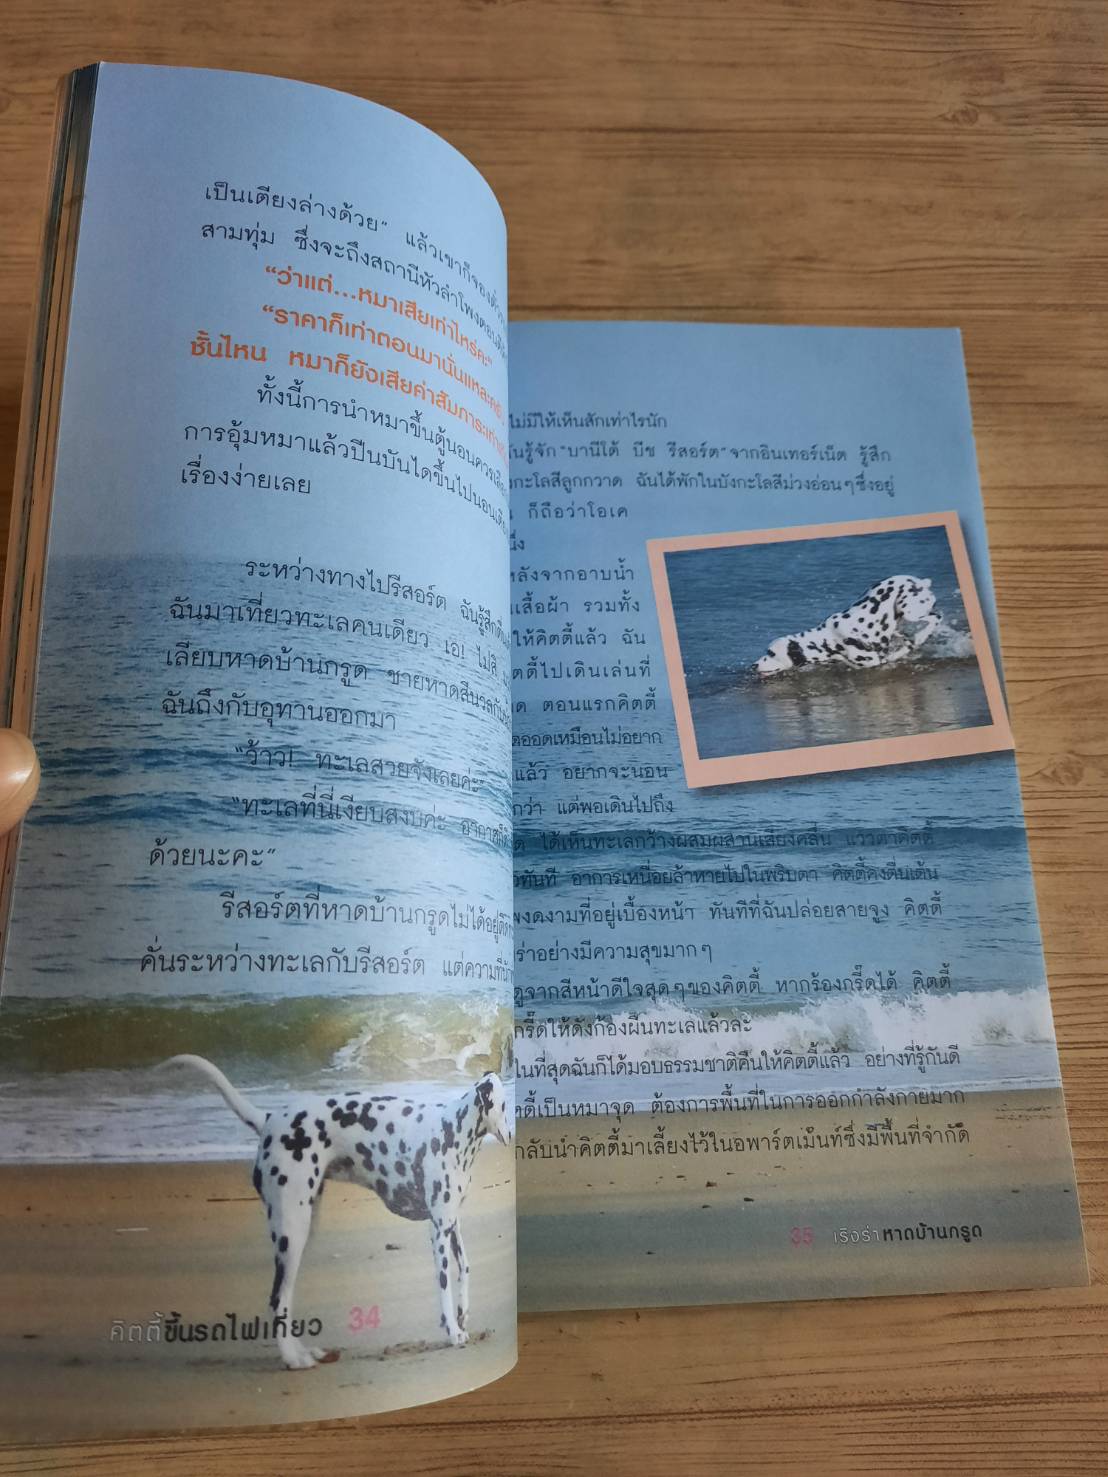 เป็นเตียงล่างด้วย" แล้วเขาก็จองตั๋ว
สามทุ่ม ซึ่งจะถึงสถานีหัวลำโพงตอน
"ว่าแต่...หมาเสียเท่าไหร่คะ"
"ราคาก็เท่าตอนมานั่นแหละครับ
ชั้นไหน หมาก็ยังเสียค่าสัมภาระเท่า
ทั้งนี้การนำหมาขึ้นตู้นอนควร
การอุ้มหมาแล้วปีนบันไดขึ้นไปนอน
เรื่องง่ายเลย
ระหว่างทางไปรีสอร์ต ฉันรู้สึก
ฉันมาเที่ยวทะเลคนเดียว เอ! ไม่สิ
เลียบหาดบ้านกรูด ชายหาดสีนวล
ฉันถึงกับอุทานออกมา
"ว้าว! ทะเลสวยจังเลยค่ะ"
"ทะเลที่นี่เงียบสงบค่ะ อากาศ
ด้วยนะคะ"
รีสอร์ตที่หาดบ้านกรูดไม่ได้อยู่ติด
คั่นระหว่างทะเลกับรีสอร์ต แต่ความ
คิตตี้ขึ้นรถไฟเที่ยว 34
ไม่มีให้เห็นสักเท่าไรนัก
รู้จัก "บานีโต้ บีช รีสอร์ต" จากอินเทอร์เน็ต รู้สึก
สีลูกกวาด ฉันได้พักในบังกะโลสีม่วงอ่อนๆซึ่งอยู่
ก็ถือว่าโอเค
หลังจากอาบน้ำ
เสื้อผ้า รวมทั้ง
ให้คิตตี้แล้ว ฉัน
ไปเดินเล่นที่
ตอนแรกคิตตี้
เหมือนไม่อยาก
แล้ว อยากจะนอน
กว่า แต่พอเดินไปถึง
ได้เห็นทะเลกว้างผสมผสานเสียงคลื่น แววตาคิตตี้
ทันที อาการเหนื่อยล้าหายไปในพริบตา คิตตี้คงตื่นเต้น
งดงามที่อยู่เบื้องหน้า ทันทีที่ฉันปล่อยสายจูง คิตตี้
ร่าอย่างมีความสุขมากๆ
ดูจากสีหน้าดีใจสุดๆของคิตตี้ หากร้องกรี๊ดได้ คิตตี้
กรี๊ดให้ดังก้องผืนทะเลแล้วละ
ในที่สุดฉันก็ได้มอบธรรมชาติคืนให้คิตตี้แล้ว อย่างที่รู้กันดี
เป็นหมาจุด ต้องการพื้นที่ในการออกกำลังกายมาก
กลับนำคิตตี้มาเลี้ยงไว้ในอพาร์ตเม้นท์ซึ่งมีพื้นที่จำกัด
35 เริงร่าหาดบ้านกรูด